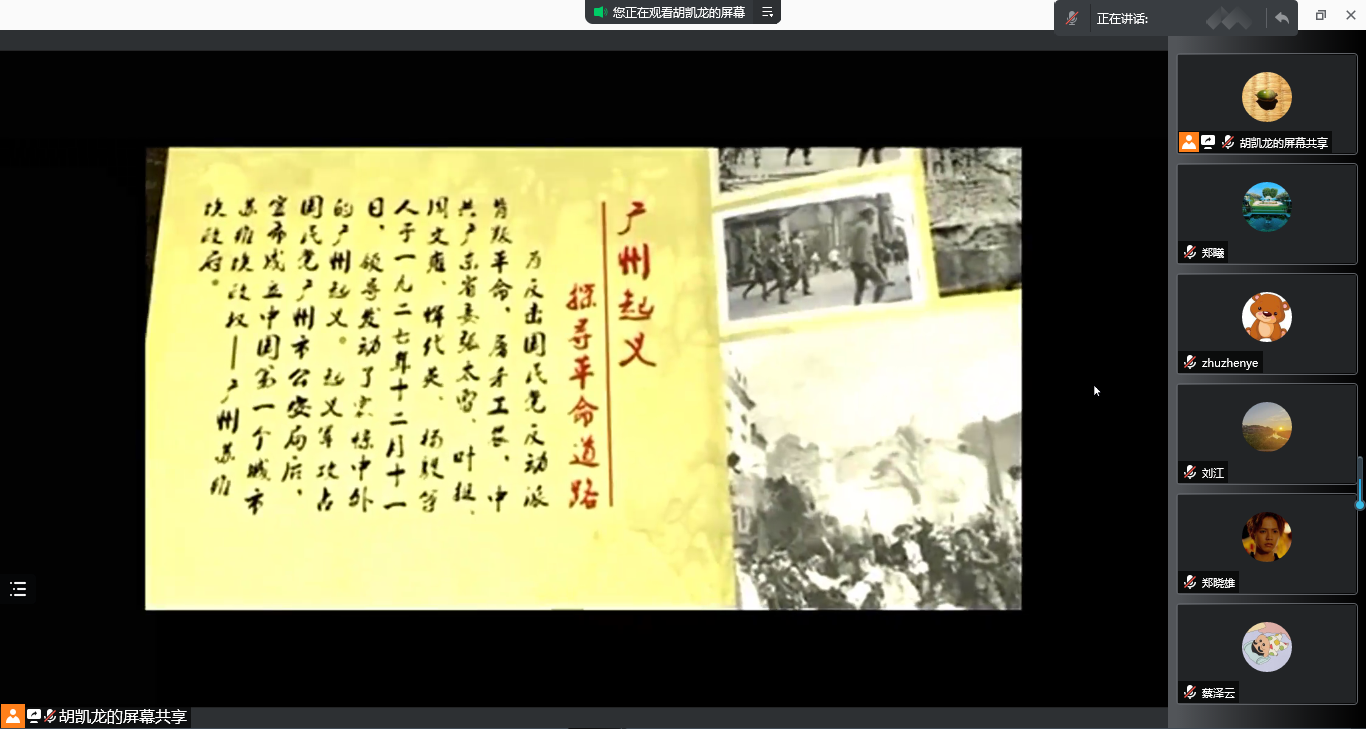 您正在观看胡凯龙的屏幕
正在讲话:
广州起义
探寻革命道路
为反击国民党反动派
背叛革命、屠杀工农，中
共广东省委张太雷、叶挺、
周文雍、恽代英、杨殷等
人于一九二七年十二月十一
日，领导发动了震惊中外
的广州起义。起义军攻占
国民党广州市公安局后，
宣布成立中国第一个城市
苏维埃政权—广州苏维
埃政府。
胡凯龙的屏幕共享
郑曦
zhuzhenye
刘江
郑晓雄
蔡泽云
胡凯龙的屏幕共享